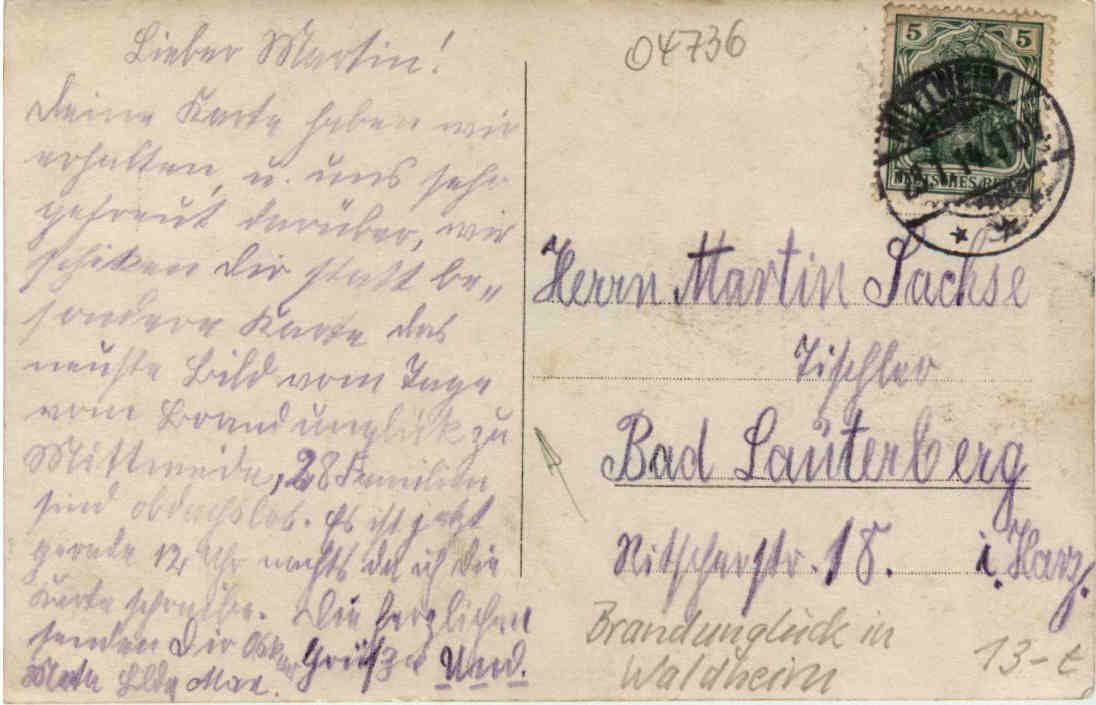 Lieber Martin!
Deine Karte haben wir
erhalten, u. uns sehr
gefreut darüber, wir
schiken Dir statt be„
sondere Karte das
neuste Bild vom Tage
vom Brandunglük zu
Mittweida, 28 Familien
sind obdachslos. Es ist jetzt
gerade 12 Uhr nachts da ich die
Karte schreibe. Die herzlichen
senden Dir Oskar Grüße Und.
Max.
04736
5 5
DEUTSCHES REICH
MITTWEIDA
Herrn Martin Sachse
Tischler
Bad Lauterberg
18. i. Harz.
Brandunglück in
Waldheim
13-